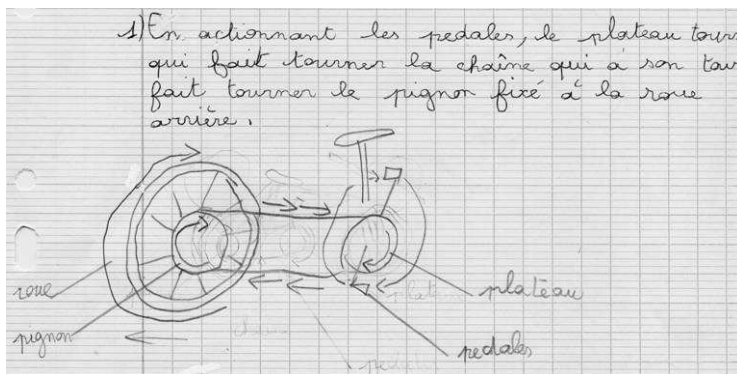 1) En actionnant les pedales, le plateau tourne
qui fait tourner la chaîne qui à son tour
fait tourner le pignon fixé à la roue
arrière.
roue
pignon
plateau
plateau
pedales
pedales